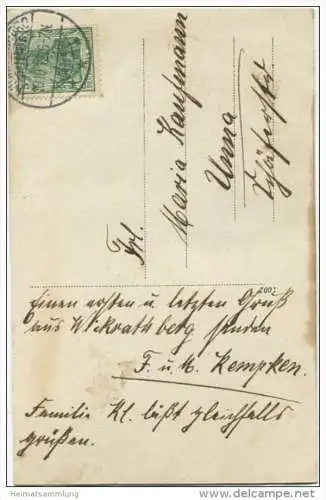 Frl.
Maria Kaufmann
Unna
Schäferstr
200
Einen ersten u. letzten Gruß
aus Wickrathberg senden
F. u. M. Kempken.
Familie Kl. läßt gleichfalls
grüßen.
Heimatsammlung
www.heimatsammlung.de